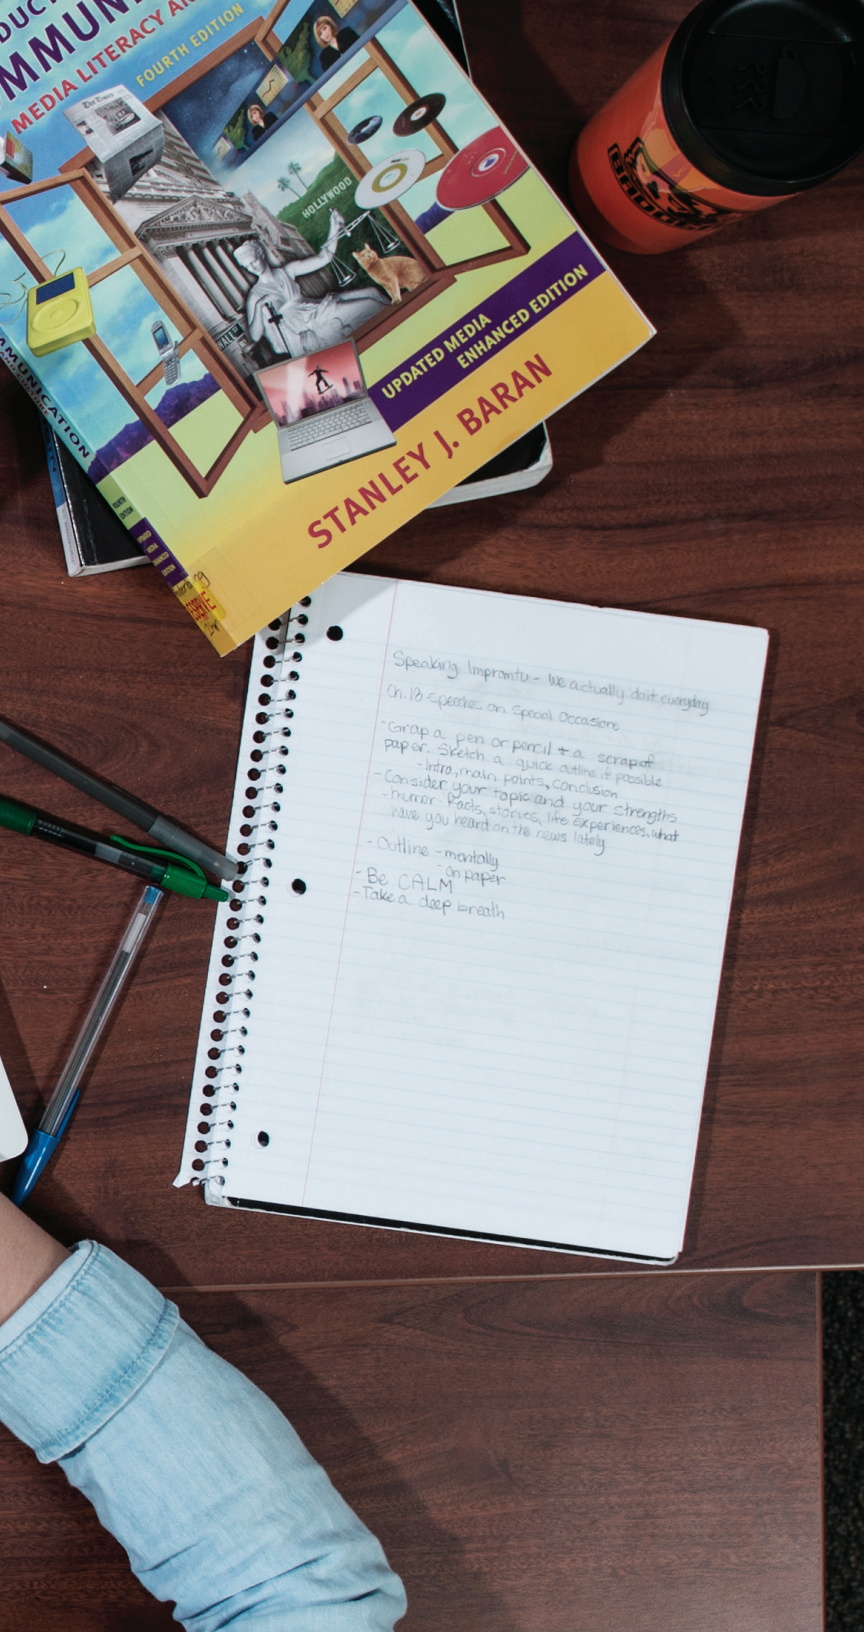 DUCT
MMUNI
MEDIA LITERACY AN
FOURTH EDITION
The Times
HOLLYWOOD
WALL ST
UPDATED MEDIA
ENHANCED EDITION
STANLEY J. BARAN
MMUNICATION
FOURTH EDITION
UPDATED MEDIA ENHANCED EDITION
Speaking Impromtu - We actually do it everyday
Ch. 18 Speeches on Special Occasions
- Grap a pen or pencil + a scrap of
paper. Sketch a quick outline if possible
- Intro, main points, conclusion
- Consider your topic and your strengths
- humor- facts, stories, life experiences, what
have you heard on the news lately
- Outline - mentally
- on paper
- Be CALM
- Take a deep breath